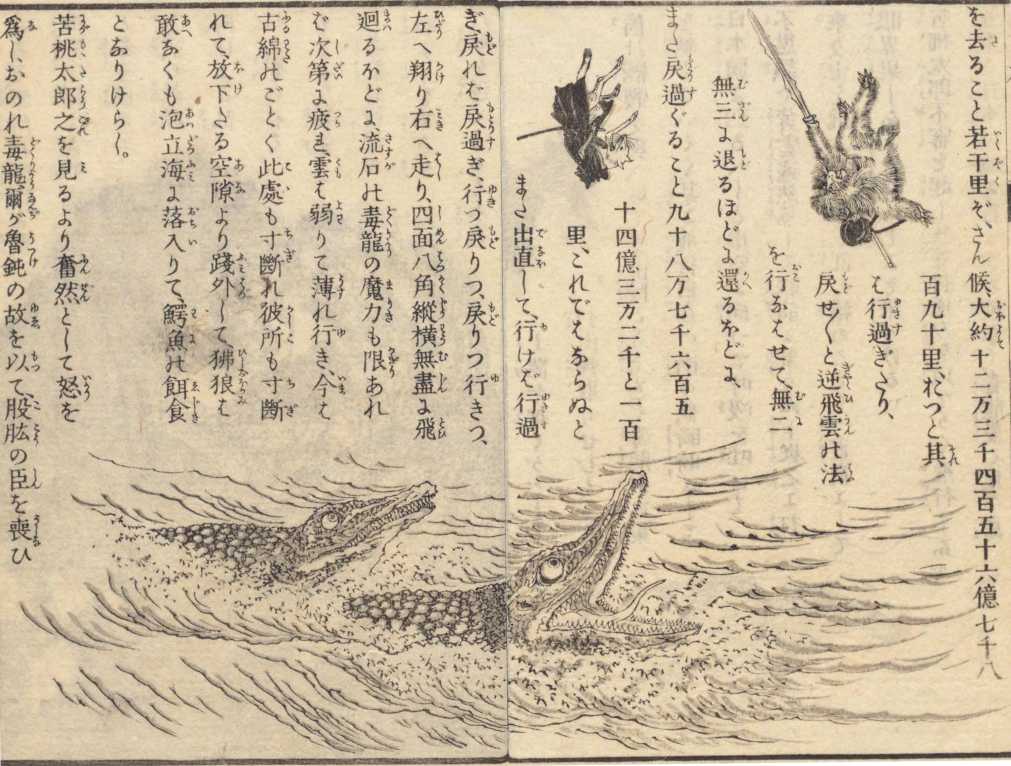 を去ること若干里ぞ、さん候大約十二万三千四百五十六億七千八
百九十里、れつと其、
は行過ぎたり、
戻せ〱と逆飛雲の法
を行なはせて、無二
無三に退るほどに還るほどに、
また戻過ぐること九十八万七千六百五
十四億三万二千と一百
里、これではならぬと
また出直して、行けば行過
ぎ、戻れば戻過ぎ、行つ戻りつ、戻りつ行きつ、
左へ翔り右へ走り、四面八角縦横無盡に飛
廻るほどに流石の毒龍の魔力も限あれ
ば次第に疲ま、雲も弱りて薄れ行き、今は
古綿のごとく此處も寸斷れ彼所も寸斷
れて、放下たる空隙より踐外して、狒狼は
敢なくも泡立海に落入りて、鰐魚の餌食
とありけらし。
苦桃太郎之を見るより奮然として怒を
爲し、おのれ毒龍、爾が魯鈍の故を以て、股肱の臣を喪ひ